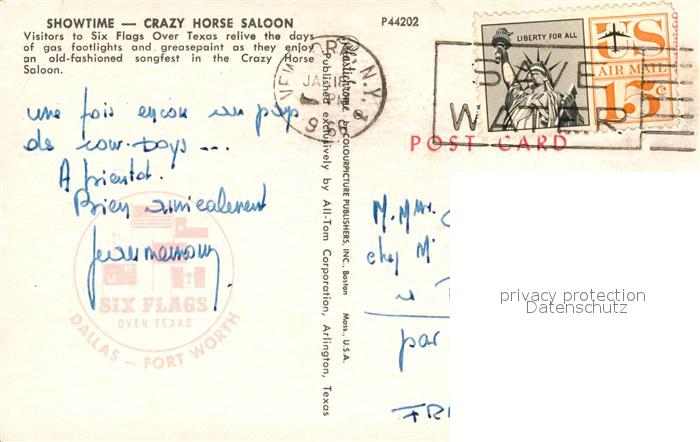 SHOWTIME — CRAZY HORSE SALOON
P44202
Visitors to Six Flags Over Texas relive the days
of gas footlights and greasepaint as they enjoy
an old-fashioned songfest in the Crazy Horse
Saloon.
une fois encore au pays
de cow-boys ...
A bientôt.
Bien amicalement
SIX FLAGS
OVER TEXAS
DALLAS — FORT WORTH
Plastichrome by COLOURPICTURE PUBLISHERS, INC., Boston Mass., U.S.A.
Published exclusively by All-Tom Corporation, Arlington, Texas
N.Y.
JAN
LIBERTY FOR ALL
US
AIR MAIL
15c
SAVE
WATER
POST CARD
M. Mme
chez M
par
FR
privacy protection
Datenschutz